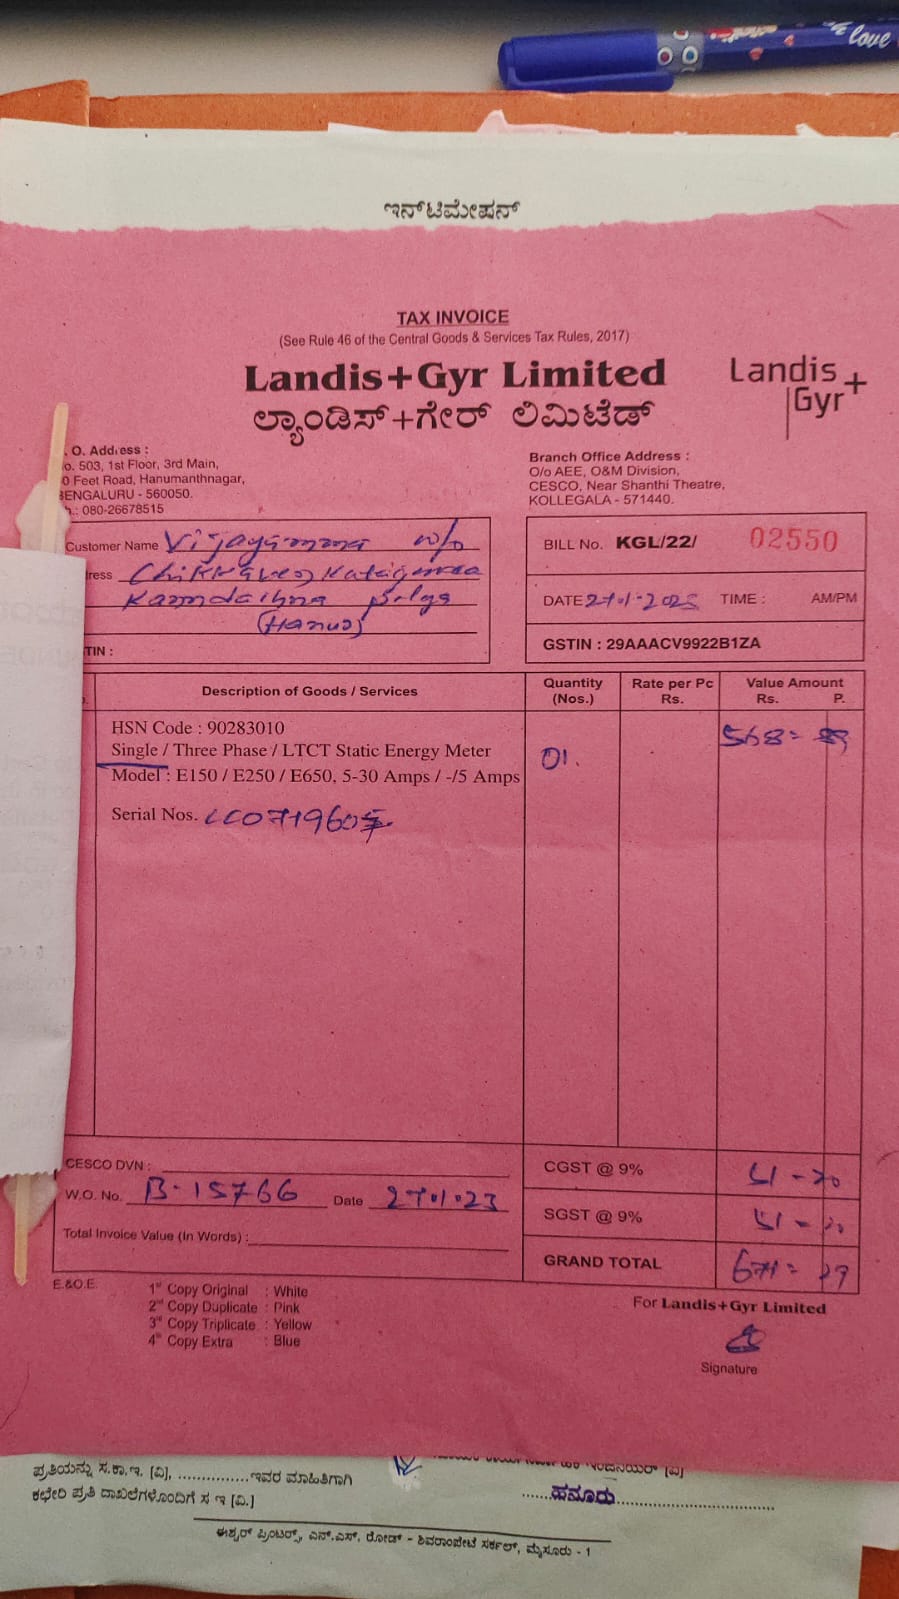 love
ಇನ್‌ಟಿಮೇಷನ್
TAX INVOICE
(See Rule 46 of the Central Goods & Services Tax Rules, 2017)
Landis+Gyr Limited
ಲ್ಯಾಂಡಿಸ್+ಗೇರ್ ಲಿಮಿಟೆಡ್
Landis+Gyr
. O. Address :
o. 503, 1st Floor, 3rd Main,
0 Feet Road, Hanumanthnagar,
BENGALURU - 560050.
.: 080-26678515
Branch Office Address :
O/o AEE, O&M Division,
CESCO, Near Shanthi Theatre,
KOLLEGALA - 571440.
Customer Name Vijayamma w/o
ress
(Hanur)
TIN :
BILL No. KGL/22/ 02550
DATE TIME : AM/PM
GSTIN : 29AAACV9922B1ZA
Description of Goods / Services
Quantity (Nos.)
Rate per Pc Rs.
Value Amount Rs. P.
HSN Code : 90283010
Single / Three Phase / LTCT Static Energy Meter
Model : E150 / E250 / E650, 5-30 Amps / -/5 Amps
01.
568=
Serial Nos.
CESCO DVN :
W.O. No. B-15766 Date 27.01.23
Total Invoice Value (In Words) :
CGST @ 9% 51-20
SGST @ 9% 51-20
GRAND TOTAL 671=
E.&O.E.
1st Copy Original : White
2nd Copy Duplicate : Pink
3rd Copy Triplicate : Yellow
4th Copy Extra : Blue
For Landis+Gyr Limited
Signature
ಪ್ರತಿಯನ್ನು ಸ.ಕಾ.ಇ. [ವಿ], ...............ಇವರ ಮಾಹಿತಿಗಾಗಿ
ಕಛೇರಿ ಪ್ರತಿ ದಾಖಲೆಗಳೊಂದಿಗೆ ಸ ಇ [ವಿ.]
ಹನೂರು
ಈಶ್ವರ್ ಪ್ರಿಂಟರ್ಸ್, ಎನ್.ಎಸ್. ರೋಡ್ - ಶಿವರಾಂಪೇಟೆ ಸರ್ಕಲ್, ಮೈಸೂರು - 1